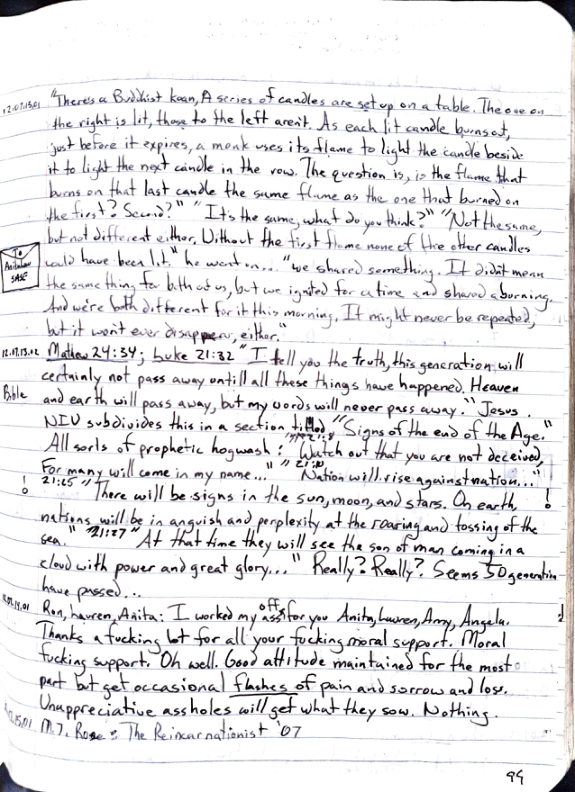 12.07.13.01 "There's a Buddhist koan, A series of candles are set up on a table. The one on
the right is lit, those to the left aren't. As each lit candle burns out,
just before it expires, a monk uses its flame to light the candle beside
it to light the next candle in the row. The question is, is the flame that
burns on that last candle the same flame as the one that burned on
the first? Second?" "It's the same, what do you think?" "Not the same,
but not different either. Without the first flame none of the other candles
To
SASE
would have been lit." he went on... "we shared something. It didn't mean
the same thing for both of us, but we ignited for a time and shared a burning.
And we're both different for it this morning. It might never be repeated,
but it won't ever disappear, either."
12.07.13.02 Mathew 24:34; Luke 21:32 "I tell you the truth, this generation will
certainly not pass away untill all these things have happened. Heaven
Bible and earth will pass away, but my words will never pass away." Jesus.
NIV subdivides this in a section titled "Signs of the end of the Age."
All sorts of prophetic hogwash: 21:8 "Watch out that you are not deceived,
For many will come in my name..." "21:10 Nation will rise against nation..."
! 21:25 "There will be signs in the sun, moon, and stars. On earth, !
nations will be in anguish and perplexity at the roaring and tossing of the
sea." "21:27 "At that time they will see the son of man coming in a
cloud with power and great glory..." Really? Really? Seems 50 generation
have passed...
Ron, Lauren, Anita: I worked my ass off for you Anita, Lauren, Amy, Angela.
Thanks a fucking lot for all your fucking moral support. Moral
fucking support. Oh well. Good attitude maintained for the most
part but get occasional flashes of pain and sorrow and loss.
Unappreciative assholes will get what they sow. Nothing.
M.J. Rose: The Reincarnationist '07
99